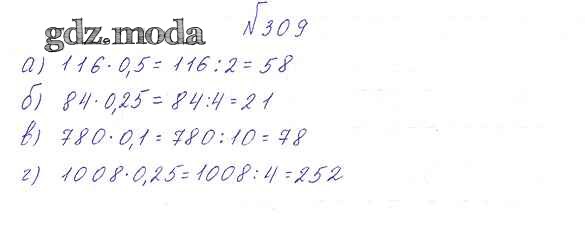 gdz.moda
№309
а) 116·0,5=116:2=58
б) 84·0,25=84:4=21
в) 780·0,1=780:10=78
г) 1008·0,25=1008:4=252